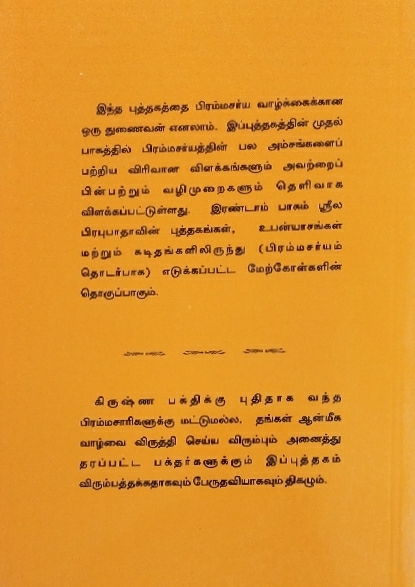 இந்த புத்தகத்தை பிரம்மசர்ய வாழ்க்கைக்கான
ஒரு துணைவன் எனலாம். இப்புத்தகத்தின் முதல்
பாகத்தில் பிரம்மசர்யத்தின் பல அம்சங்களைப்
பற்றிய விரிவான விளக்கங்களும் அவற்றைப்
பின்பற்றும் வழிமுறைகளும் தெளிவாக
விளக்கப்பட்டுள்ளது. இரண்டாம் பாகம் ஸ்ரீல
பிரபுபாதாவின் புத்தகங்கள், உபன்யாசங்கள்
மற்றும் கடிதங்களிலிருந்து (பிரம்மசர்யம்
தொடர்பாக) எடுக்கப்பட்ட மேற்கோள்களின்
தொகுப்பாகும்.
கிருஷ்ண பக்திக்கு புதிதாக வந்த
பிரம்மசாரிகளுக்கு மட்டுமல்ல, தங்கள் ஆன்மீக
வாழ்வை விருத்தி செய்ய விரும்பும் அனைத்து
தரப்பட்ட பக்தர்களுக்கும் இப்புத்தகம்
விரும்பத்தக்கதாகவும் பேருதவியாகவும் திகழும்.